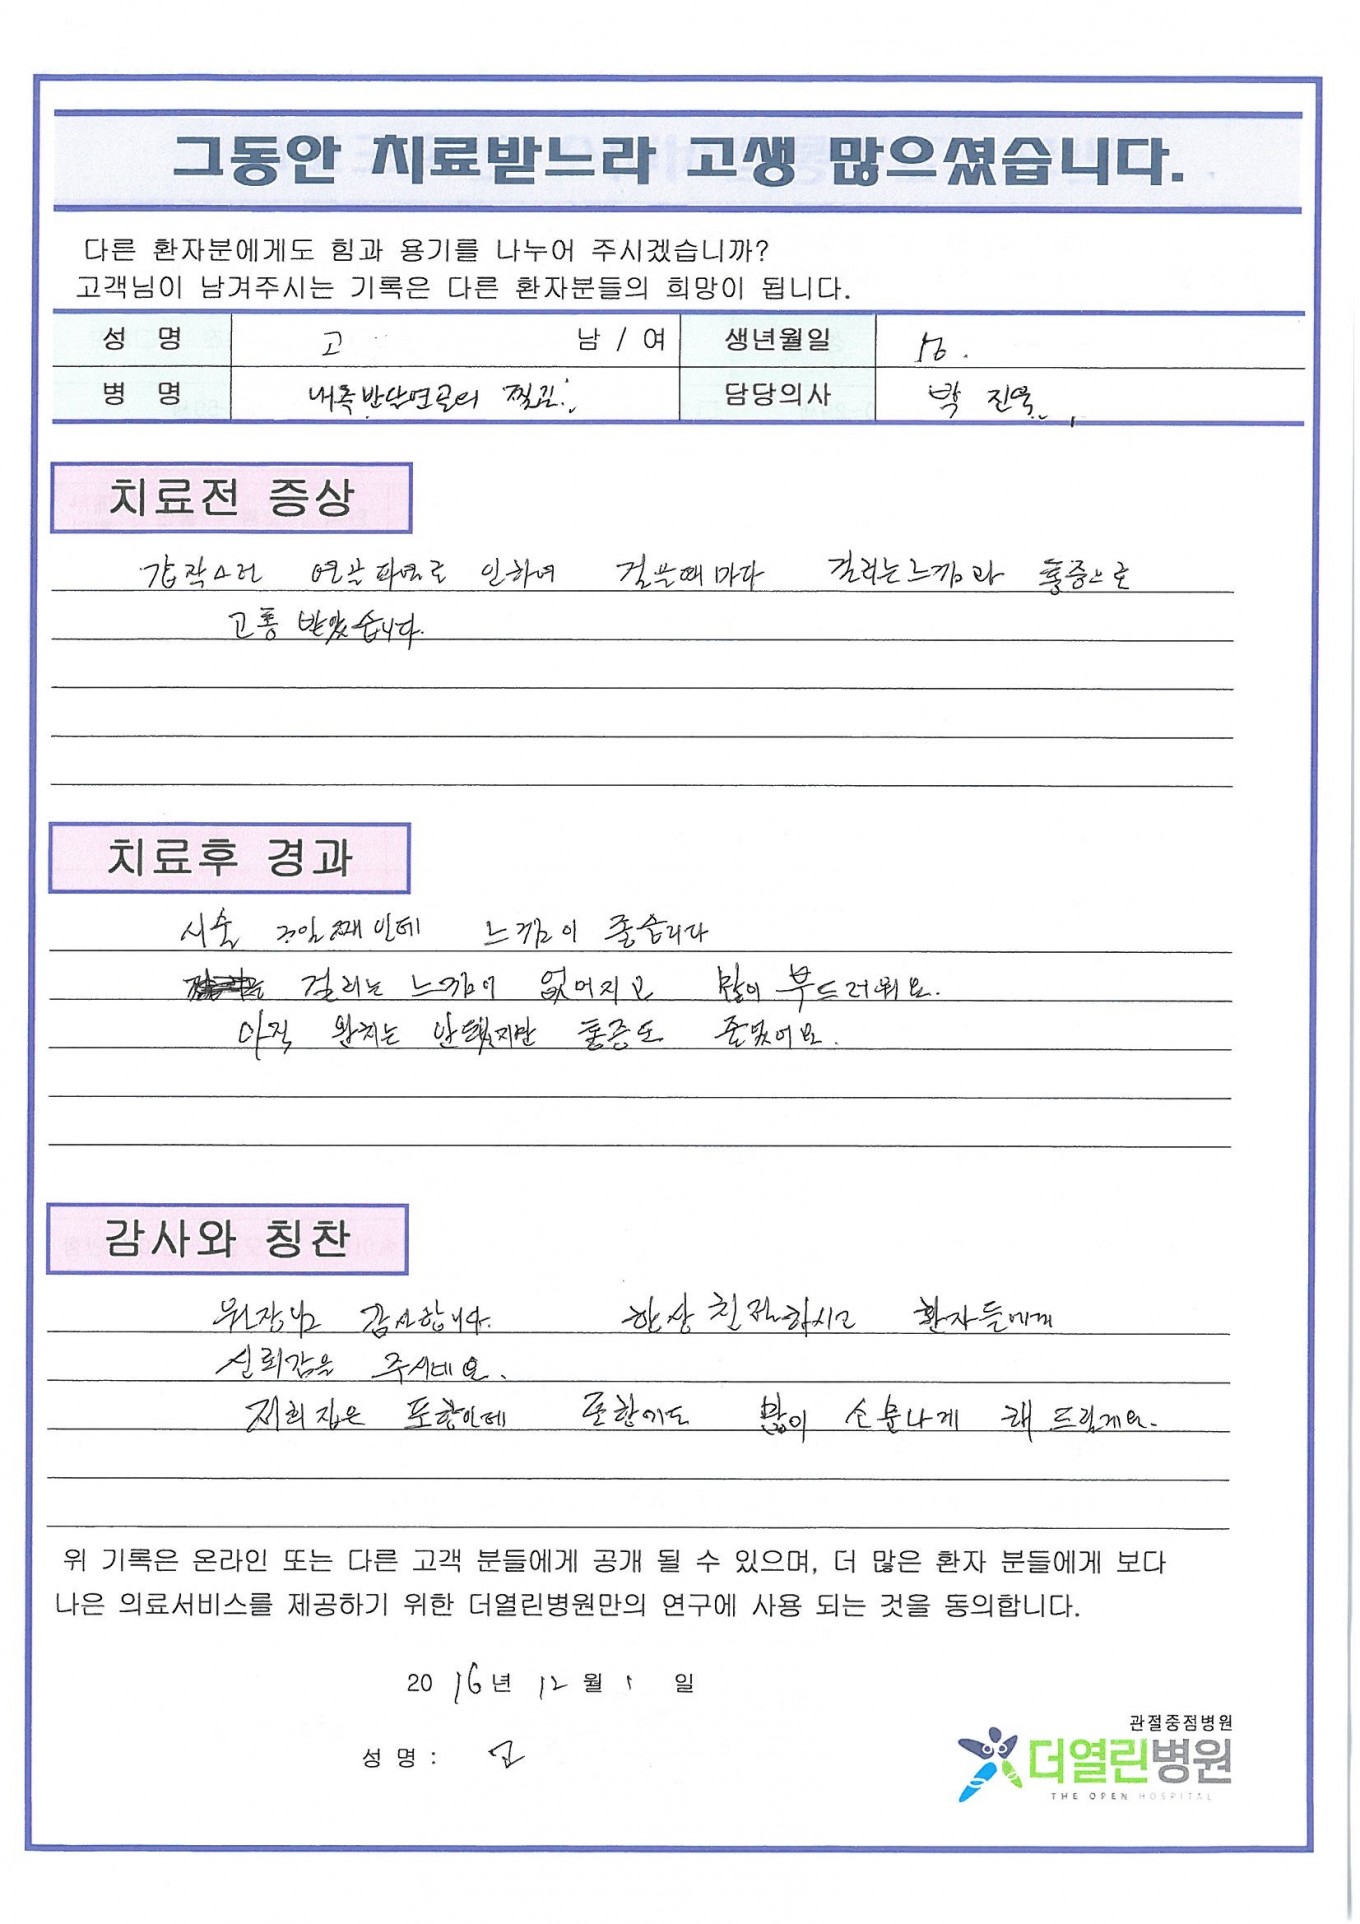 그동안 치료받느라 고생 많으셨습니다.
다른 환자분에게도 힘과 용기를 나누어 주시겠습니까?
고객님이 남겨주시는 기록은 다른 환자분들의 희망이 됩니다.
성 명 고 남 / 여 생년월일
병 명 내측반달연골의 찢김 담당의사 박 진욱
치료전 증상
갑작스런 연골파열로 인하여 걸을때마다 걸리는느낌과 통증으로
고통 받았습니다.
치료후 경과
시술 3일째인데 느낌이 좋습니다
걸리는 느낌이 없어지고 많이 부드러워요.
아직 완치는 안됐지만 통증도 줄었어요.
감사와 칭찬
원장님 감사합니다. 항상 친절하시고 환자들에게
신뢰감을 주시네요.
저희집은 포항인데 포항에도 많이 소문나게 해 드릴게요.
위 기록은 온라인 또는 다른 고객 분들에게 공개 될 수 있으며, 더 많은 환자 분들에게 보다
나은 의료서비스를 제공하기 위한 더열린병원만의 연구에 사용 되는 것을 동의합니다.
2016년 12월 1일
성 명 : 고
관절중점병원
더열린병원
THE OPEN HOSPITAL